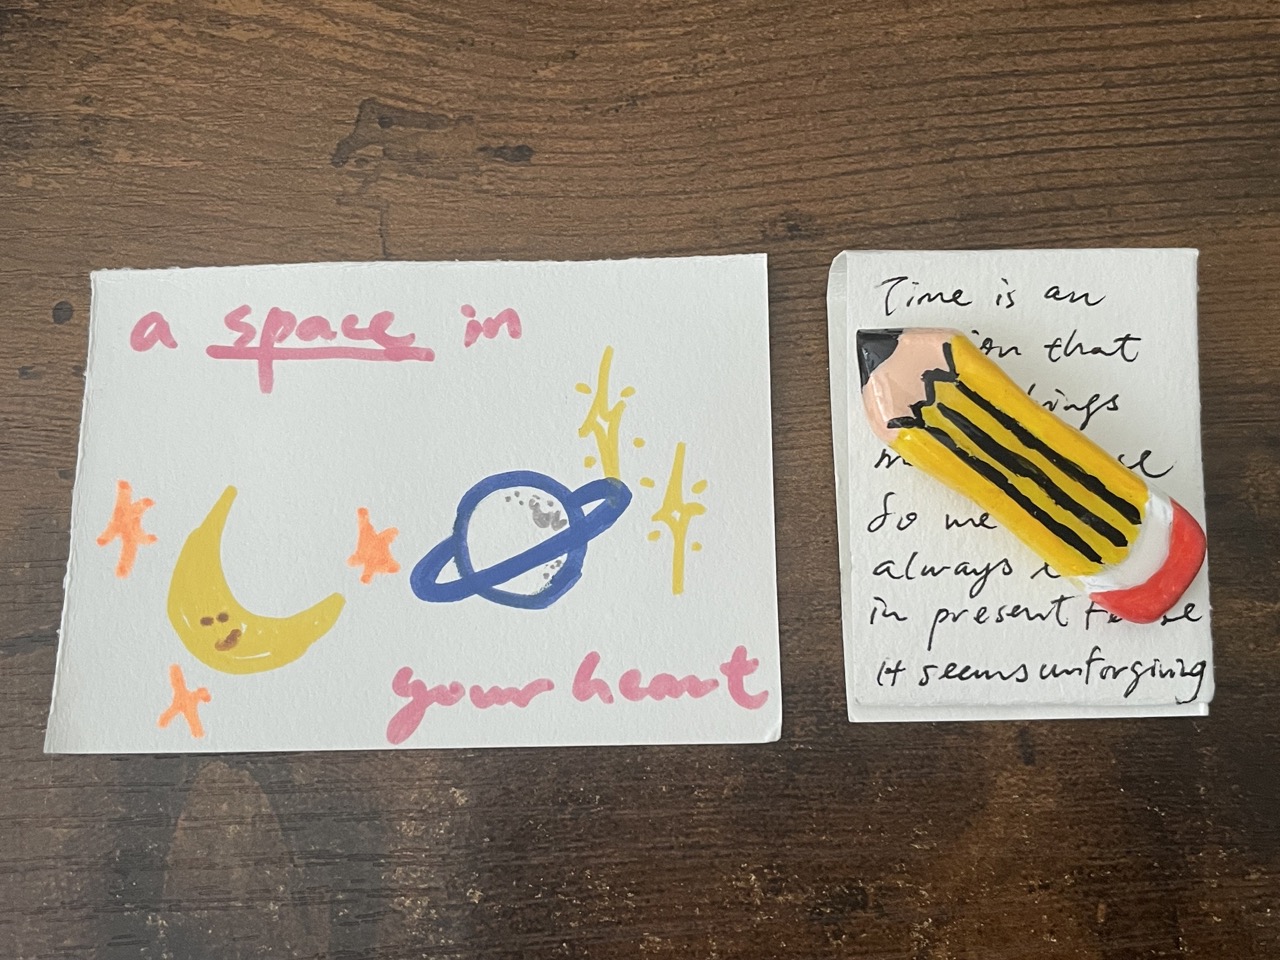 a space in
your heart
Time is an
that
me
So we
always
in present
it seems unforgiving